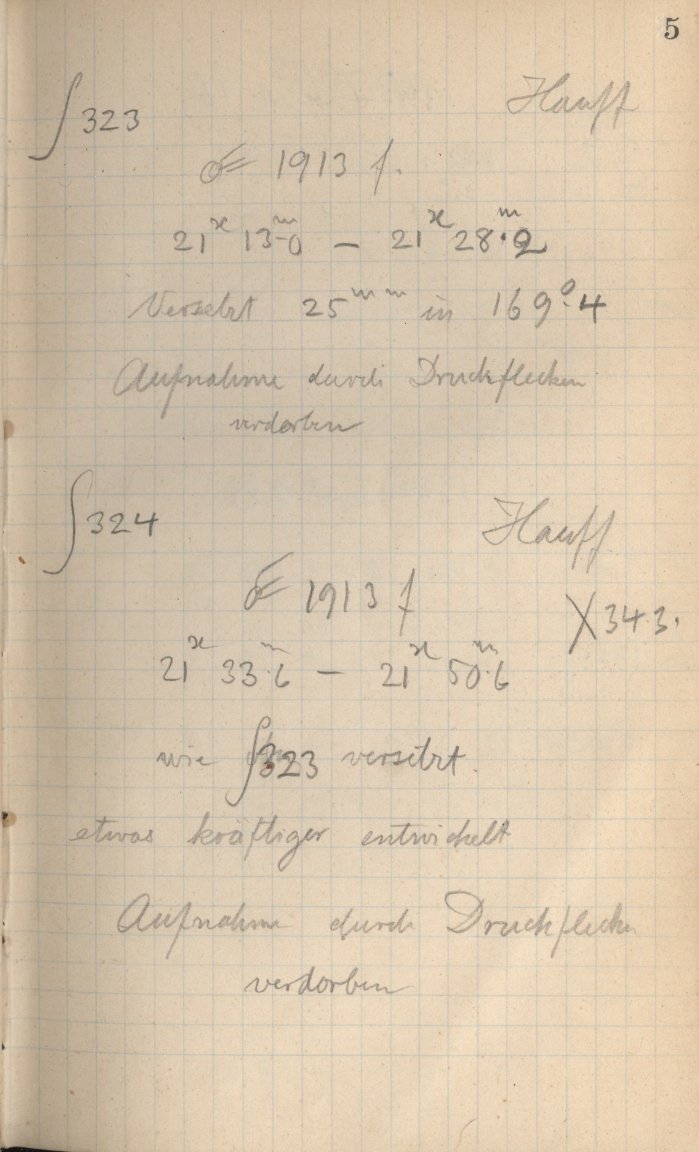 5
∫323 Hauff
☄ 1913 f.
21ˣ 13ᵐ0 – 21ˣ 28ᵐ.2
Versetzt 25ᵐᵐ in 169°.4
Aufnahme durch Druckflecken
verdorben
∫324 Hauff
☄ 1913 f
X 343.
21ˣ 33ᵐ.6 – 21ˣ 50ᵐ.6
wie ∫323 versetzt.
etwas kräftiger entwickelt
Aufnahme durch Druckflecken
verdorben